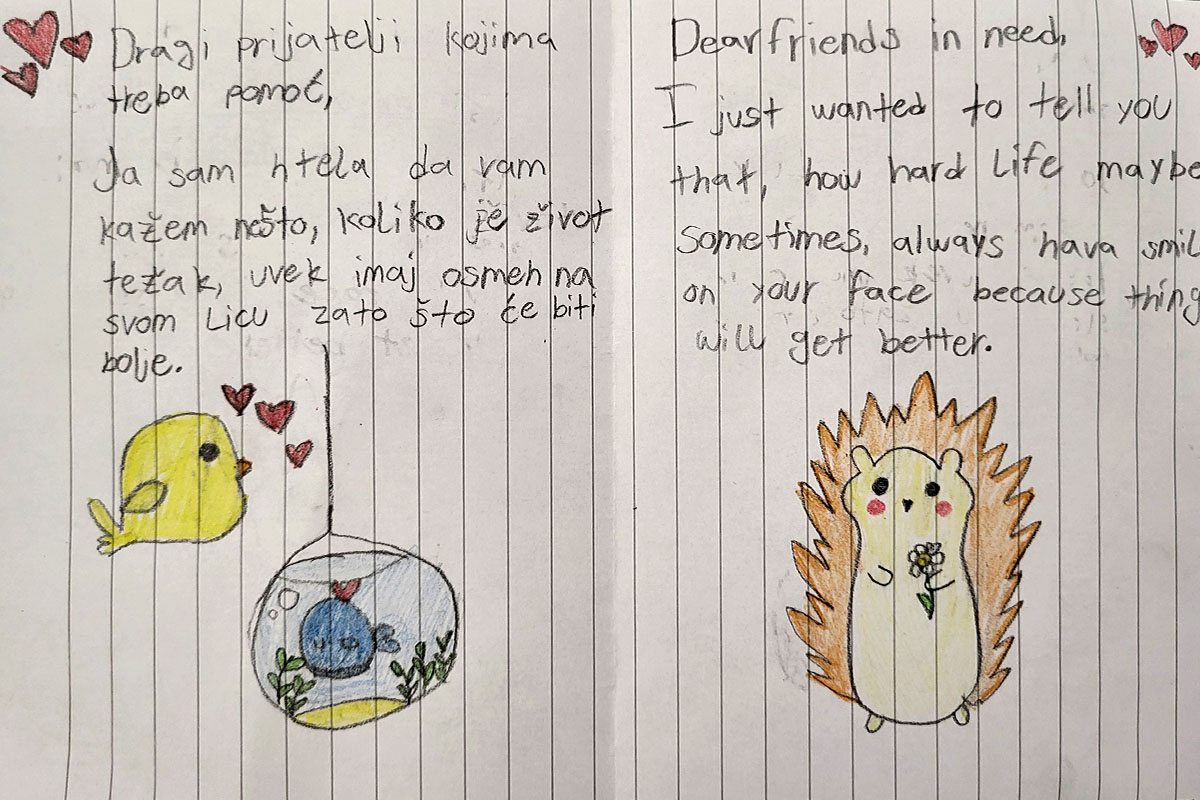 Dragi prijatelji kojima
treba pomoć,
Ja sam htela da vam
kažem nešto, koliko je život
težak, uvek imaj osmeh na
svom licu zato što će biti
bolje.
Dear friends in need,
I just wanted to tell you
that, how hard life maybe
sometimes, always hava smil
on your face because thing
will get better.